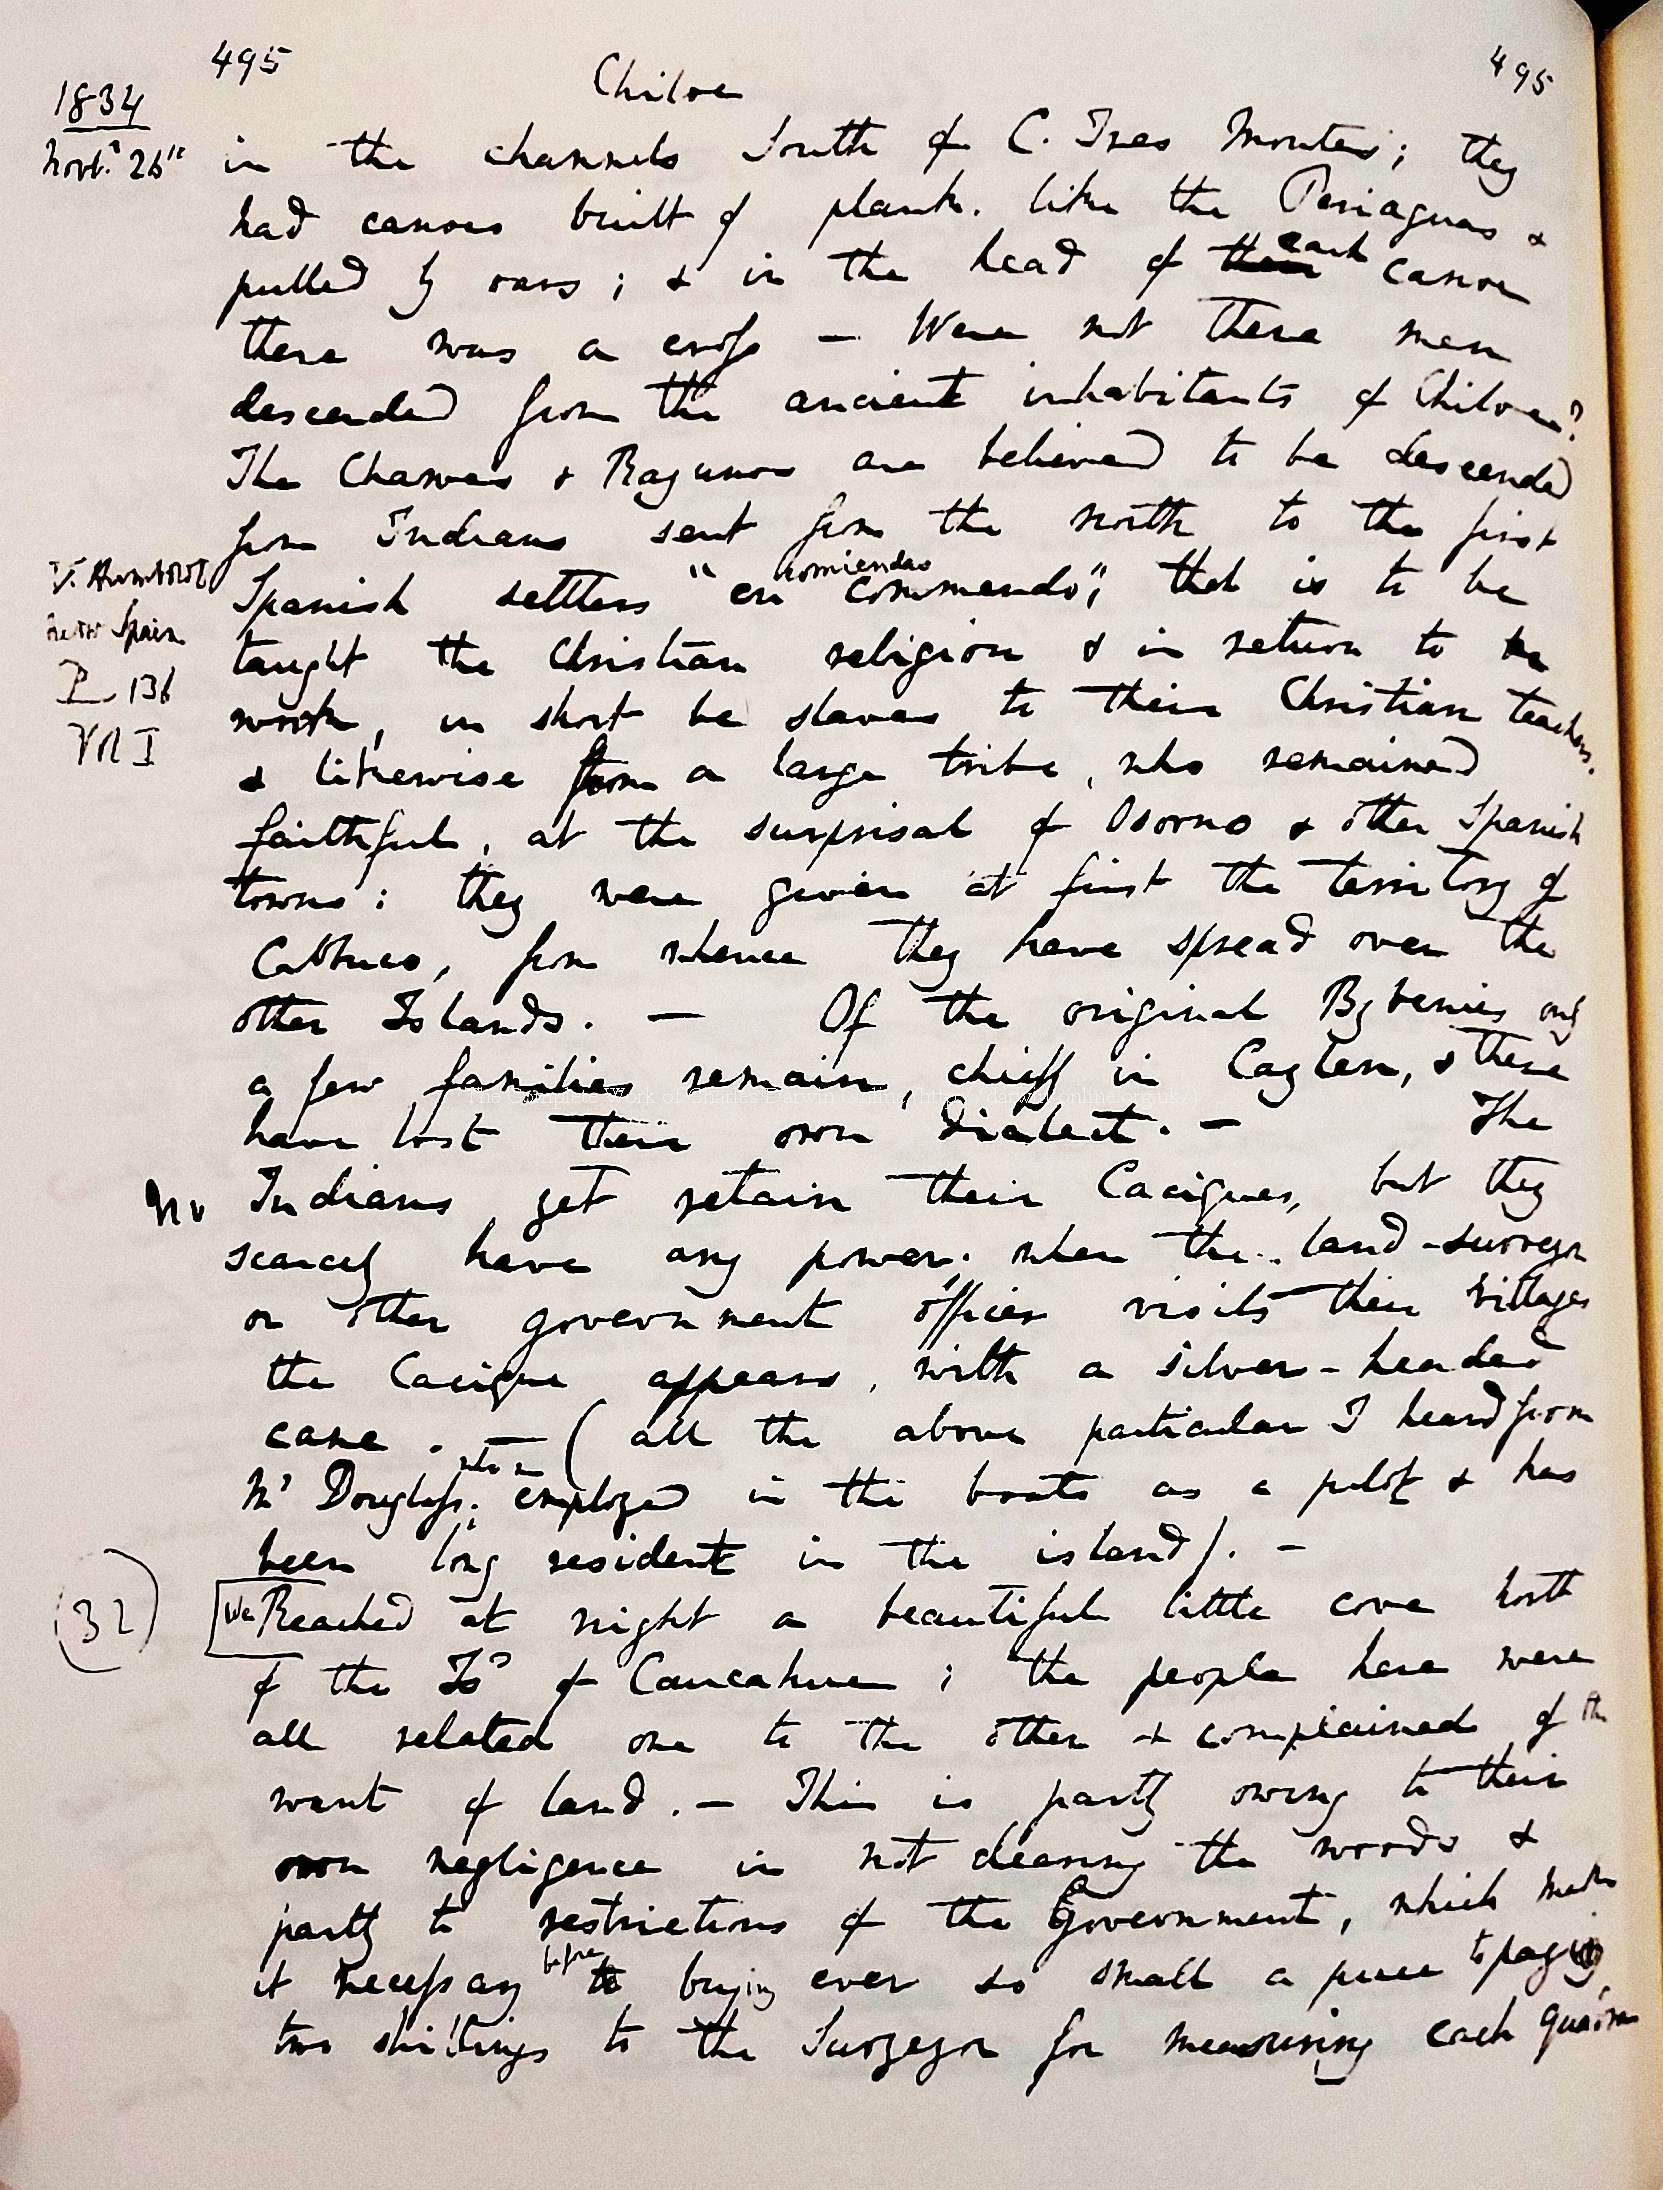 495
Chiloe
495
1834
Novr. 26th
in the channels South of C. Tres Montes; they
had canoes built of plank. like the Periaguas &
pulled by oars; & in the head of their each canoe
there was a cross — Were not these men
descended from the ancient inhabitants of Chiloe?
The Chawes & Ragunos are believed to be descended
from Indians sent from the north to the first
V. Humboldt
New Spain
P 136
Vol I
Spanish settlers "en comiendas commendo"; that is to be
taught the Christian religion & in return to
work, in short be slaves to their Christian teachers.
& likewise from a large tribe, who remained
faithful, at the surprisal of Osorno & other Spanish
towns: they were given at first the territory of
Calbuco, from whence they have spread over the
other Islands. — Of the original Bybenies only
a few families remain, chiefly in Caylen, & these
have lost their own dialect. — The
Indians yet retain their Caciques, but they
scarcely have any power. when the land-surveyor
or other government officer visits their villages
the Cacique appears, with a silver-headed
cane. — (all the above particular I heard from
Mr Douglass; who is employed in the boats as a pilot & has
been long resident in the island). —
(32)
We Reached at night a beautiful little cove North
of the Isd of Caucahue; the people here were
all related one to the other & complained of the
want of land. — This is partly owing to their
own negligence in not clearing the woods &
partly to restrictions of the Government, which makes
it necessary before to buying ever so small a piece to paying
two shillings to the Surveyor for measuring each quadra